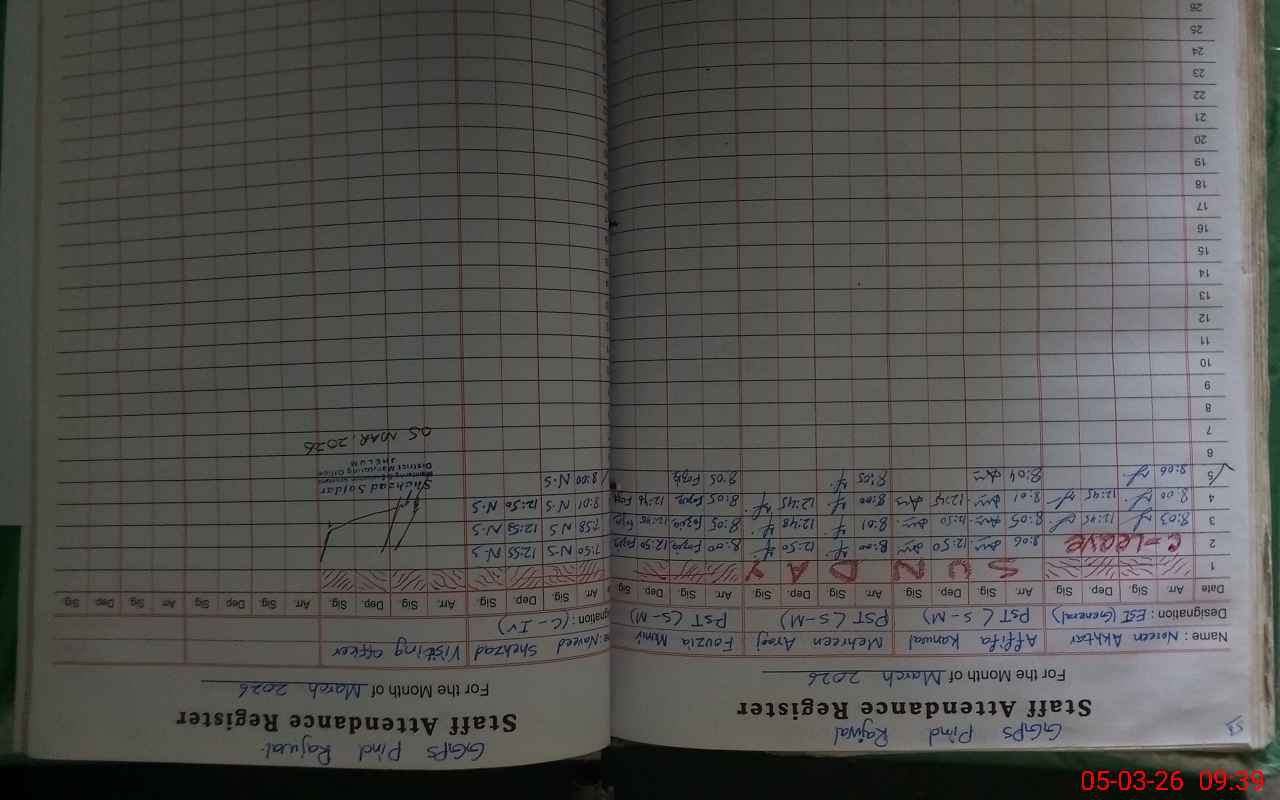 GGPS Pind Rajwal
Staff Attendance Register
For the Month of March 2026
53
Name: Noreen Akhtar Affifa Kanwal Mehreen Arooj Fouzia
Designation: EST (General) PST (S-M) PST (S-M) PST (S-M)
Date Arr. Sig. Dep. Sig. Arr. Sig. Dep. Sig. Arr. Sig. Dep. Sig. Arr. Sig. Dep. Sig.
1 S U N D A Y
2 C-Leave 8:06 12:50 8:00 12:50 8:00 12:50
3 8:03 12:45 8:05 12:50 8:01 12:48 8:05 12:45
4 8:00 12:45 8:01 12:45 8:00 12:45 8:05 12:46
5 8:06 8:04 8:05 8:05
6
7
8
9
10
11
12
13
14
15
16
17
18
19
20
21
22
23
24
25
26
GGPS Pind Rajwal
Staff Attendance Register
For the Month of March 2026
Naveed Shehzad Visiting officer
(C-IV)
Arr. Sig. Dep. Sig. Arr. Sig. Dep. Sig. Arr. Sig. Dep. Sig. Arr. Sig. Dep. Sig.
7:50 N-S 12:55 N-S
7:58 N S 12:55 N-S
8:01 N-S 12:50 N-S
8:00 N-S
Shehzad Safdar
District Monitoring Office
JHELUM
05 MAR 2026
05-03-26 09:39